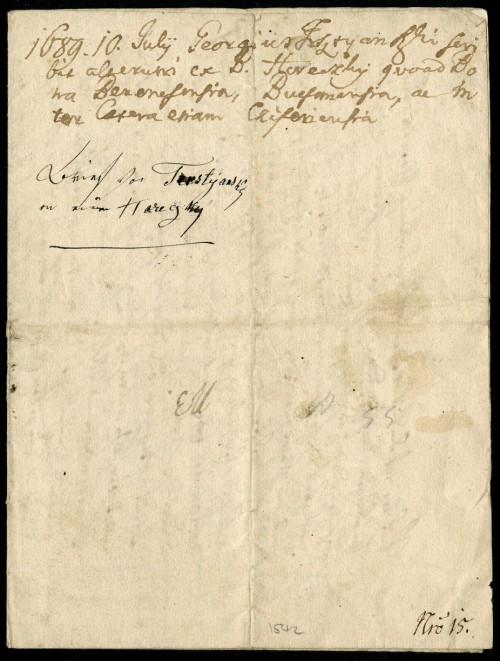 1689. 10. Julÿ Georgius Tersztyanszki scri
bit alterum ex B. Horeczky quoad Bo
na Berencsensia, Bucsanensia, ac in
ter Cetera etiam Cziferiensia
Brief von Terstÿansky
an einen Horeczky
EM
1542
Nrō 15.